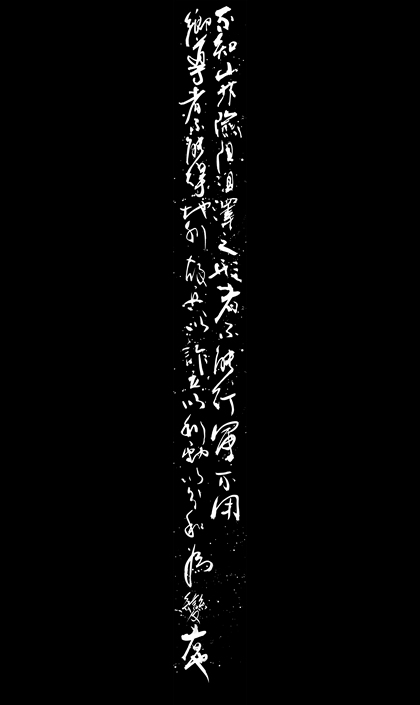 不知山林險阻沮澤之形者不能行軍不用
鄉導者不能得地利故兵以詐立以利動以分和為變者也